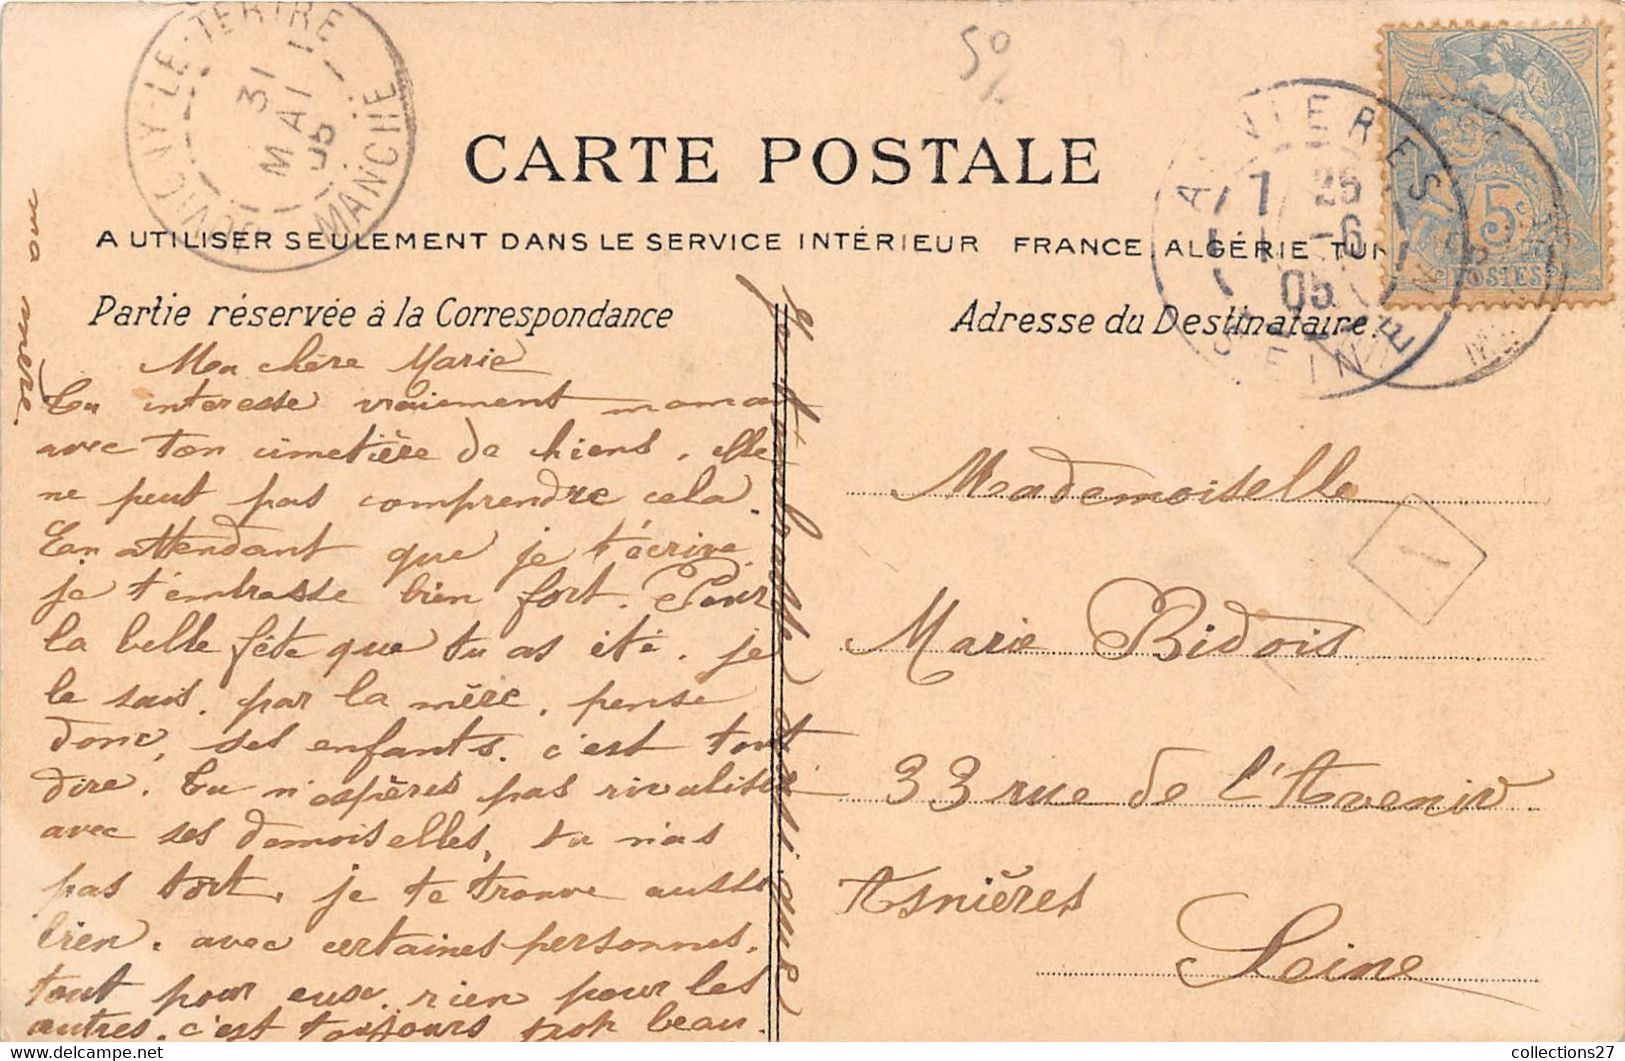 LE-TERTRE
MANCHE
31
MAI
05
5%
CARTE POSTALE
A UTILISER SEULEMENT DANS LE SERVICE INTÉRIEUR FRANCE, ALGÉRIE, TUN
ASNIERES
SEINE
7 25
1 -6
05
5c
POSTES
Partie réservée à la Correspondance
Adresse du Destinataire
Ma chère Marie
Tu interesse vraiement maman
avec ton cimetière de chiens. elle
ne peut pas comprendre cela.
En attendant que je t'écrive
je t'embrasse bien fort. Pour
la belle fête que tu as été. je
le sais. par la mère. pense
donc, ses enfants. c'est tout
dire. Tu n'espères pas rivaliser
avec ses demoiselles, tu n'as
pas tort. je te trouve aussi
bien. avec certaines personnes.
tout pour eux. rien pour les
autres. c'est toujours pas beau.
ma mère.
Mademoiselle
1
Marie Bidois
33 rue de l'Avenir
Asnières
Seine
collections27